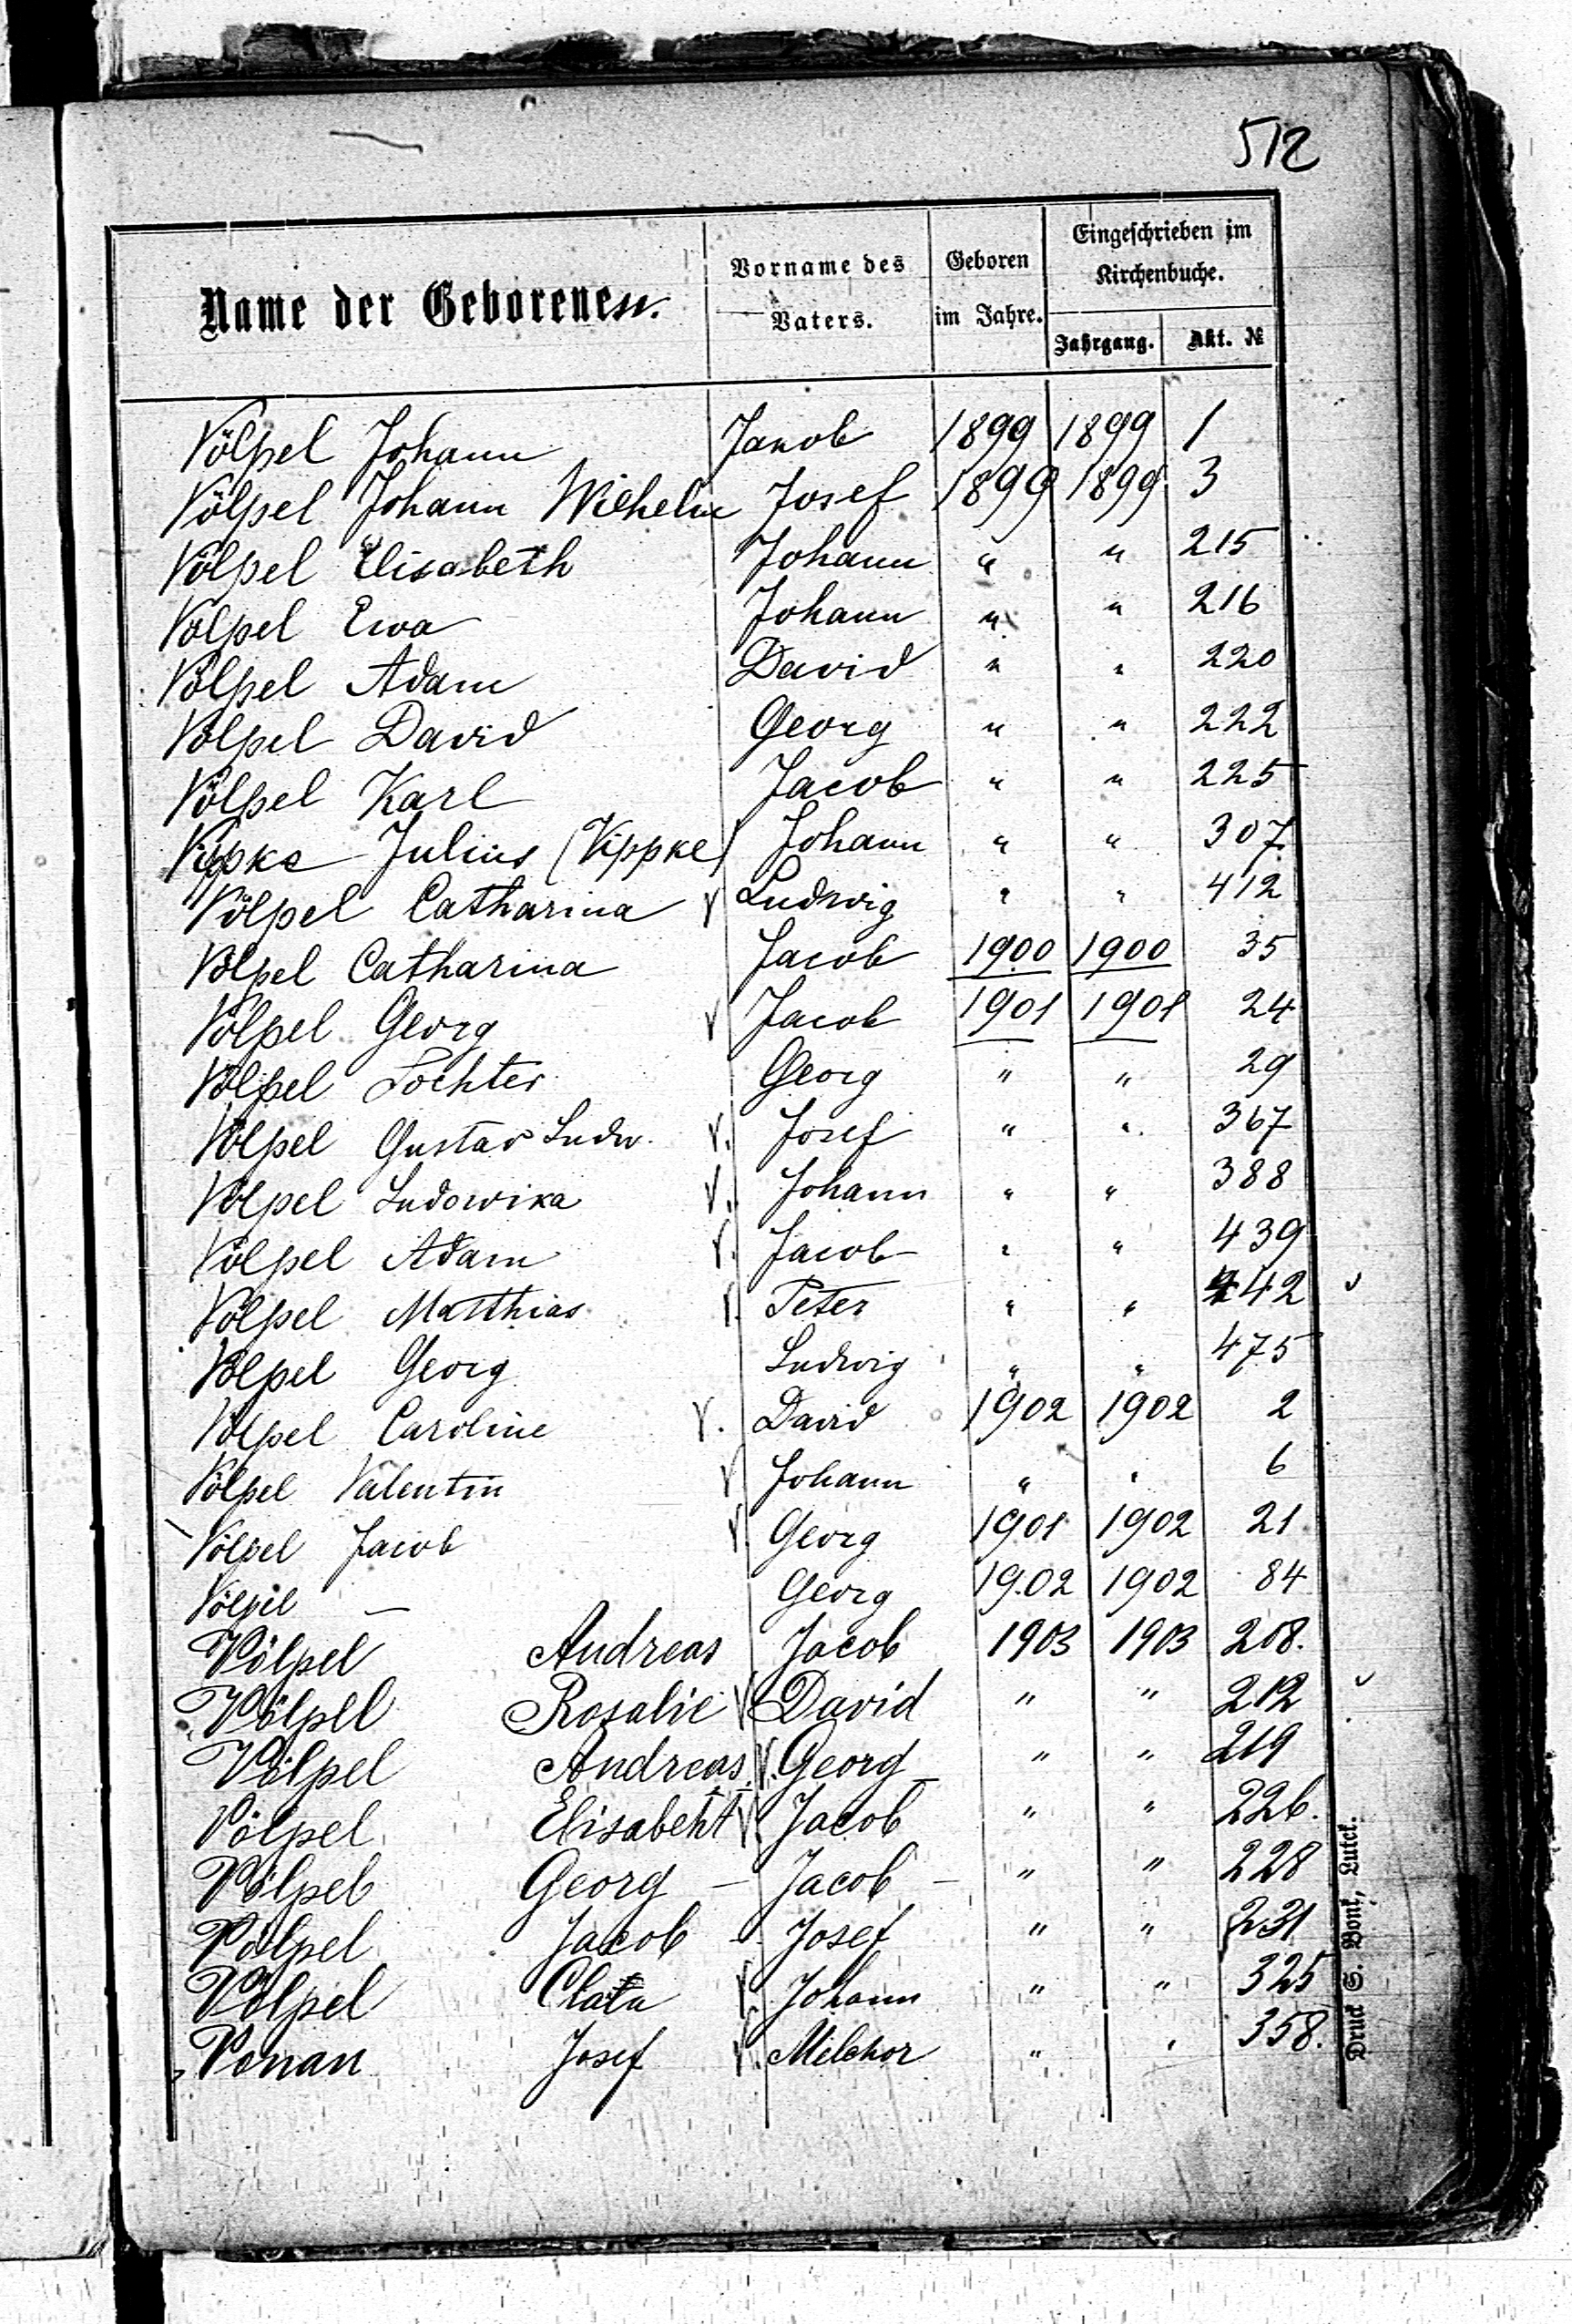 512
Name der Geborenen.
Vorname des Vaters.
Geboren im Jahre.
Eingeschrieben im Kirchenbuche.
Jahrgang. Akt. №
Völpel Johann Jakob 1899 1899 1
Völpel Johann Wilhelm Josef 1899 1899 3
Völpel Elisabeth Johann " " 215
Völpel Ewa Johann " " 216
Völpel Adam David " " 220
Völpel David Georg " " 222
Völpel Karl Jacob " " 225
Julius (Vippke) Johann " " 307
Völpel Catharina v Ludwig " " 412
Völpel Catharina Jacob 1900 1900 35
Völpel Georg v Jacob 1901 1901 24
Völpel Tochter Georg " " 29
Völpel Gustav Ludw. v. Josef " " 367
Völpel Ludowika v. Johann " " 388
Völpel Adam v. Jacob " " 439
Völpel Matthias v. Peter " " 442 v
Völpel Georg Ludwig " " 475
Völpel Caroline v. David 1902 1902 2
Völpel Valentin v Johann " " 6
Völpel Jacob v. Georg 1901 1902 21
Völpel — Georg 1902 1902 84
Völpel Andreas Jacob 1903 1903 208.
Völpel Rosalie v David " " 212
Völpel Andreas v. Georg " " 219
Völpel Elisabeht v. Jacob " " 226.
Völpel Georg — Jacob — " " 228
Völpel Jacob - Josef " " 231
Völpel v. Johann " " 325
Josef v. Milchor " " 358.
Druck S. Bonk, Lutck.